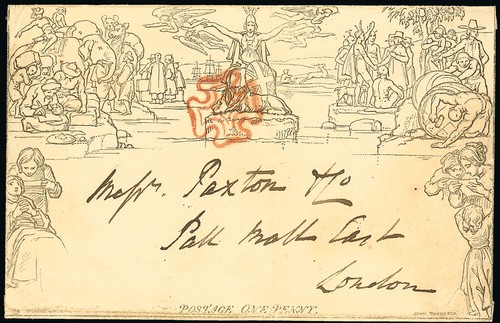 Messrs. Paxton & Co
Pall Mall East
London
POSTAGE ONE PENNY.